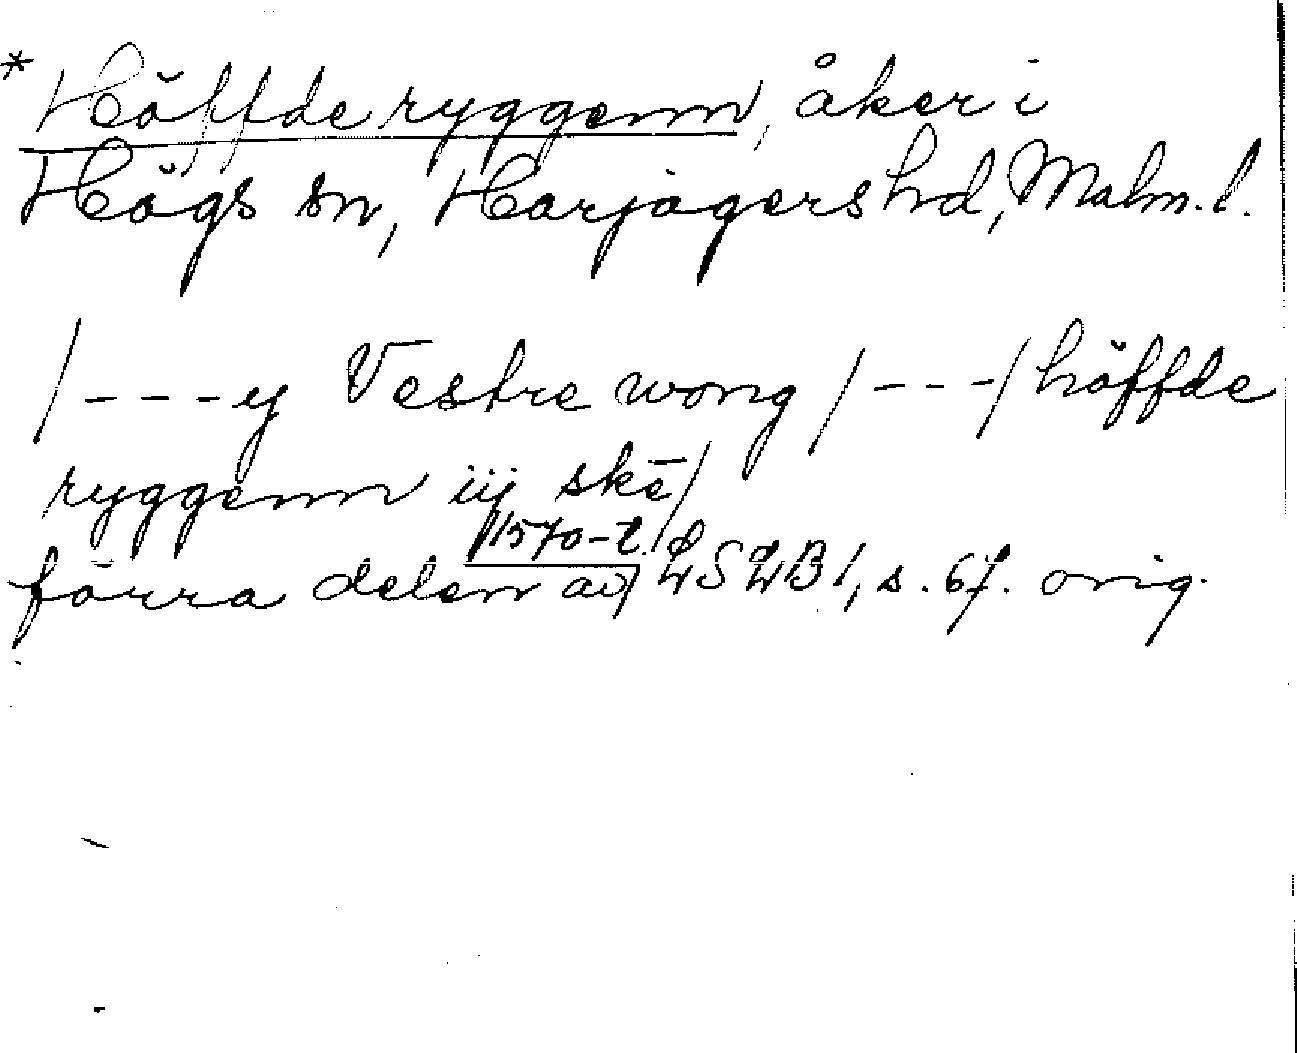 *Höffde ryggenn, åker i
Högs sn, Harjagers hd, Malm. l.
/---y Vestre wong /---/ höffde
ryggenn iij skē/
förra delen av 1570-t. LSLB 1, s. 67. orig.